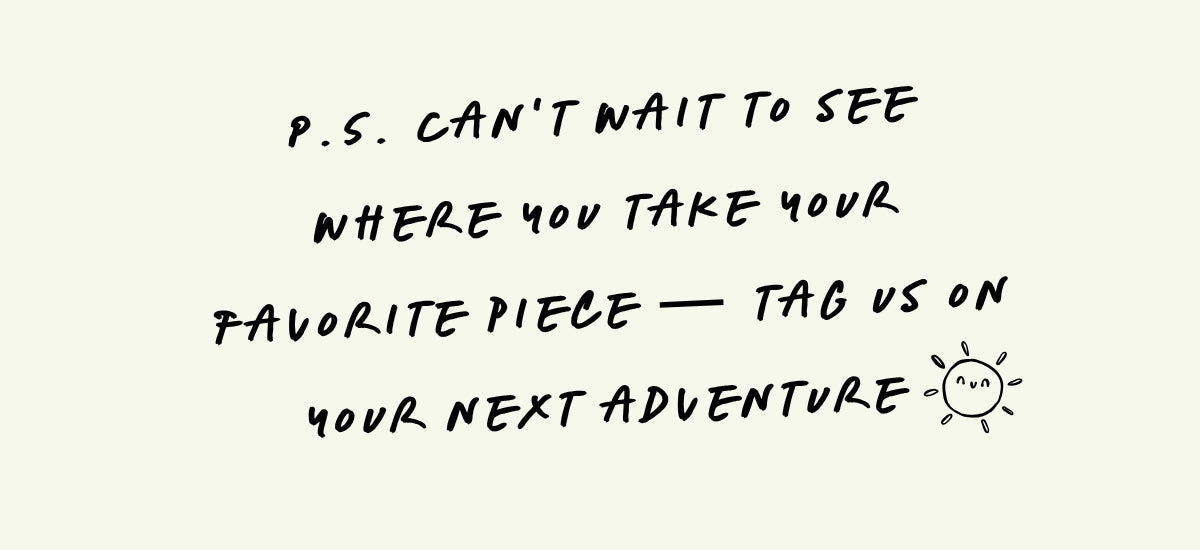 P.S. CAN'T WAIT TO SEE
WHERE YOU TAKE YOUR
FAVORITE PIECE — TAG US ON
YOUR NEXT ADVENTURE